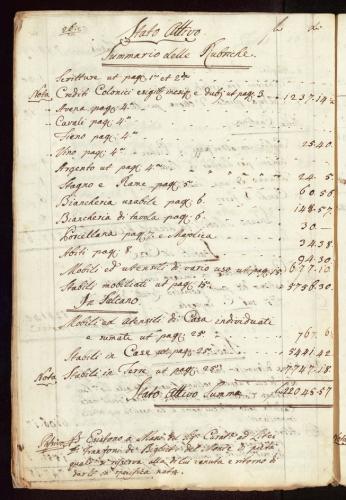 Stato Attivo
Summario delle Rubriche
Scritture ut pag. 1 et 2
Nota Crediti Colonici esig. inesig. e dubj ut pag. 3 1237.14
Avena pag. 4
Cavali pag. 4
Fieno pag. 4
Vino pag. 4 25.40
Argento ut pag. 4
Stagno e Rame pag. 5 24. 5
Biancheria usabile pag. 6 60.56
Biancheria di tavola pag. 6 148.57
Porcellana pag. 7 e Majolica 30 —
Abiti pag. 8 34.38
94.30
Mobili ed utensili di vario uso ut pag. 15 677.10
Stabili mobiliati ut pag. 15 5758.30
In Folcano
Mobili ed utensili di Casa individuati
e rimati ut pag. 25 767. 6
Stabili in Case ut pag. 25 5441.42
Nota Stabili in Terre ut pag. 25 7747.18
Stato Attivo Summa 22045.57
Esistono a Mano del
di Riserva alla di lui venuta e ritorno di
nota